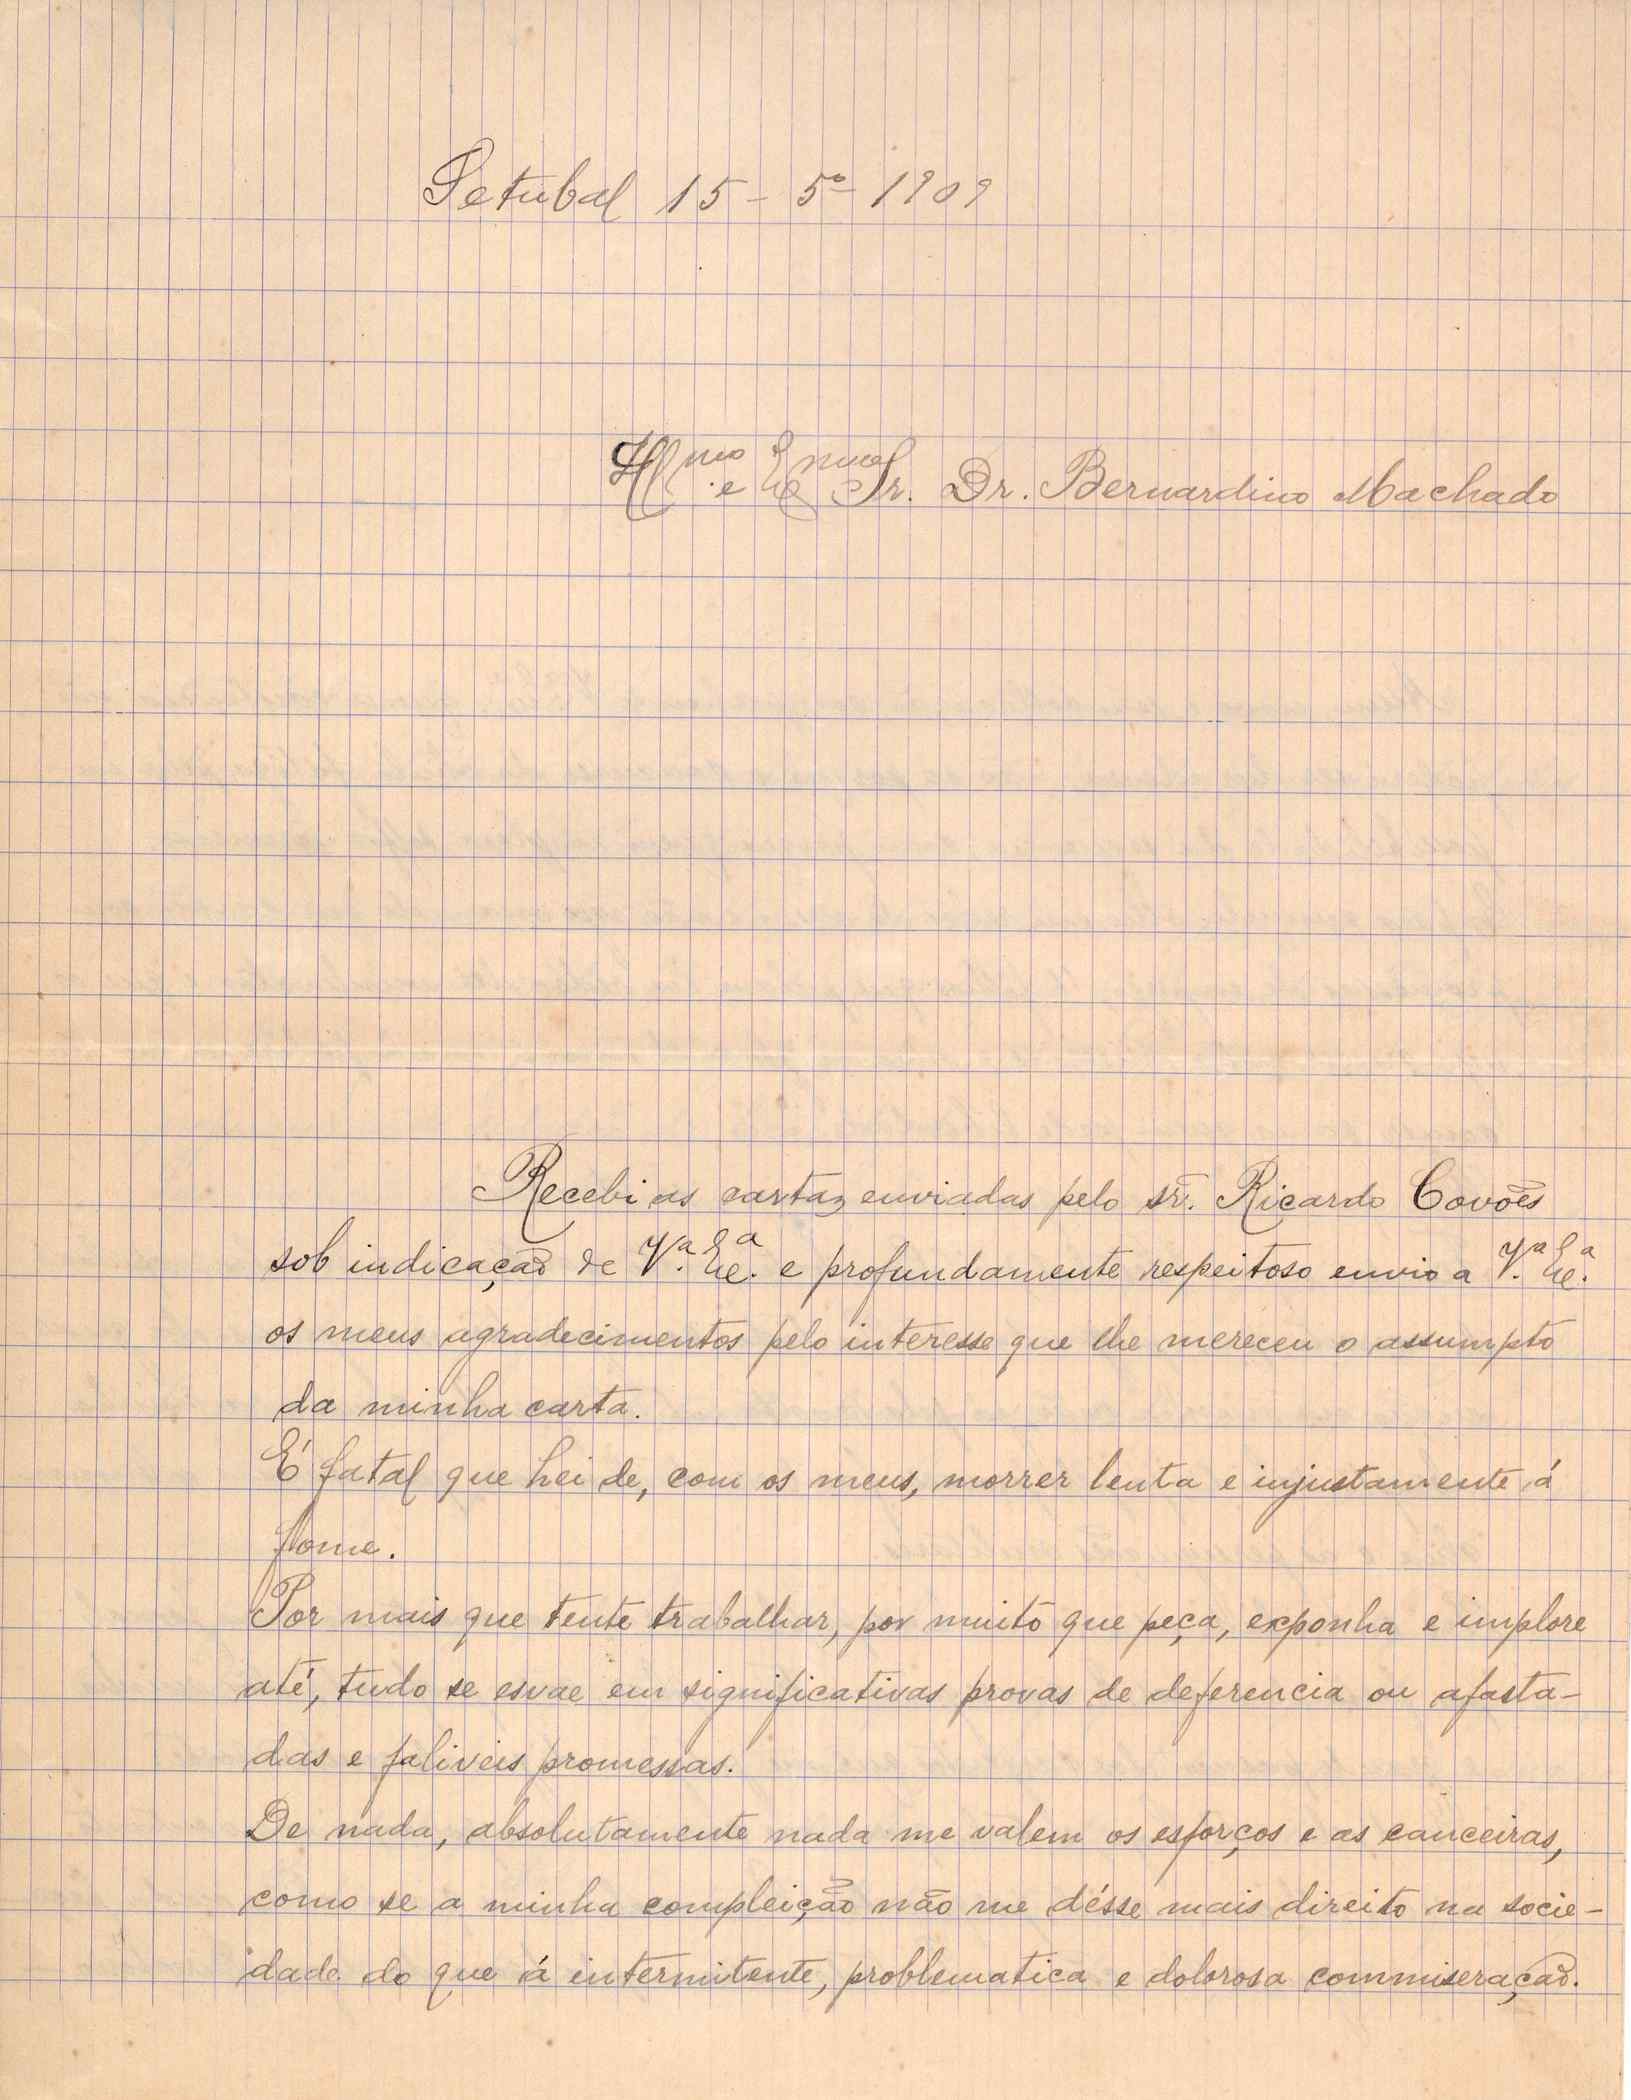 Setubal 15-5º-1909
Ill.mo e Ex.mo Sr. Dr. Bernardino Machado
Recebi as cartas enviadas pelo sr. Ricardo Covões
sob indicação de V.ª Ex.ª e profundamente respeitoso envio a V.ª Ex.ª
os meus agradecimentos pelo interesse que lhe mereceu o assumpto
da minha carta.
É fatal que hei de, com os meus, morrer lenta e injustamente á
fome.
Por mais que tente trabalhar, por muito que peça, exponha e implore
até, tudo se esvae em significativas provas de deferencia ou afasta-
das e faliveis promessas.
De nada, absolutamente nada me valem os esforços e as canceiras,
como se a minha compleição não me désse mais direito na socie-
dade do que á intermitente, problematica e dolorosa commiseração.